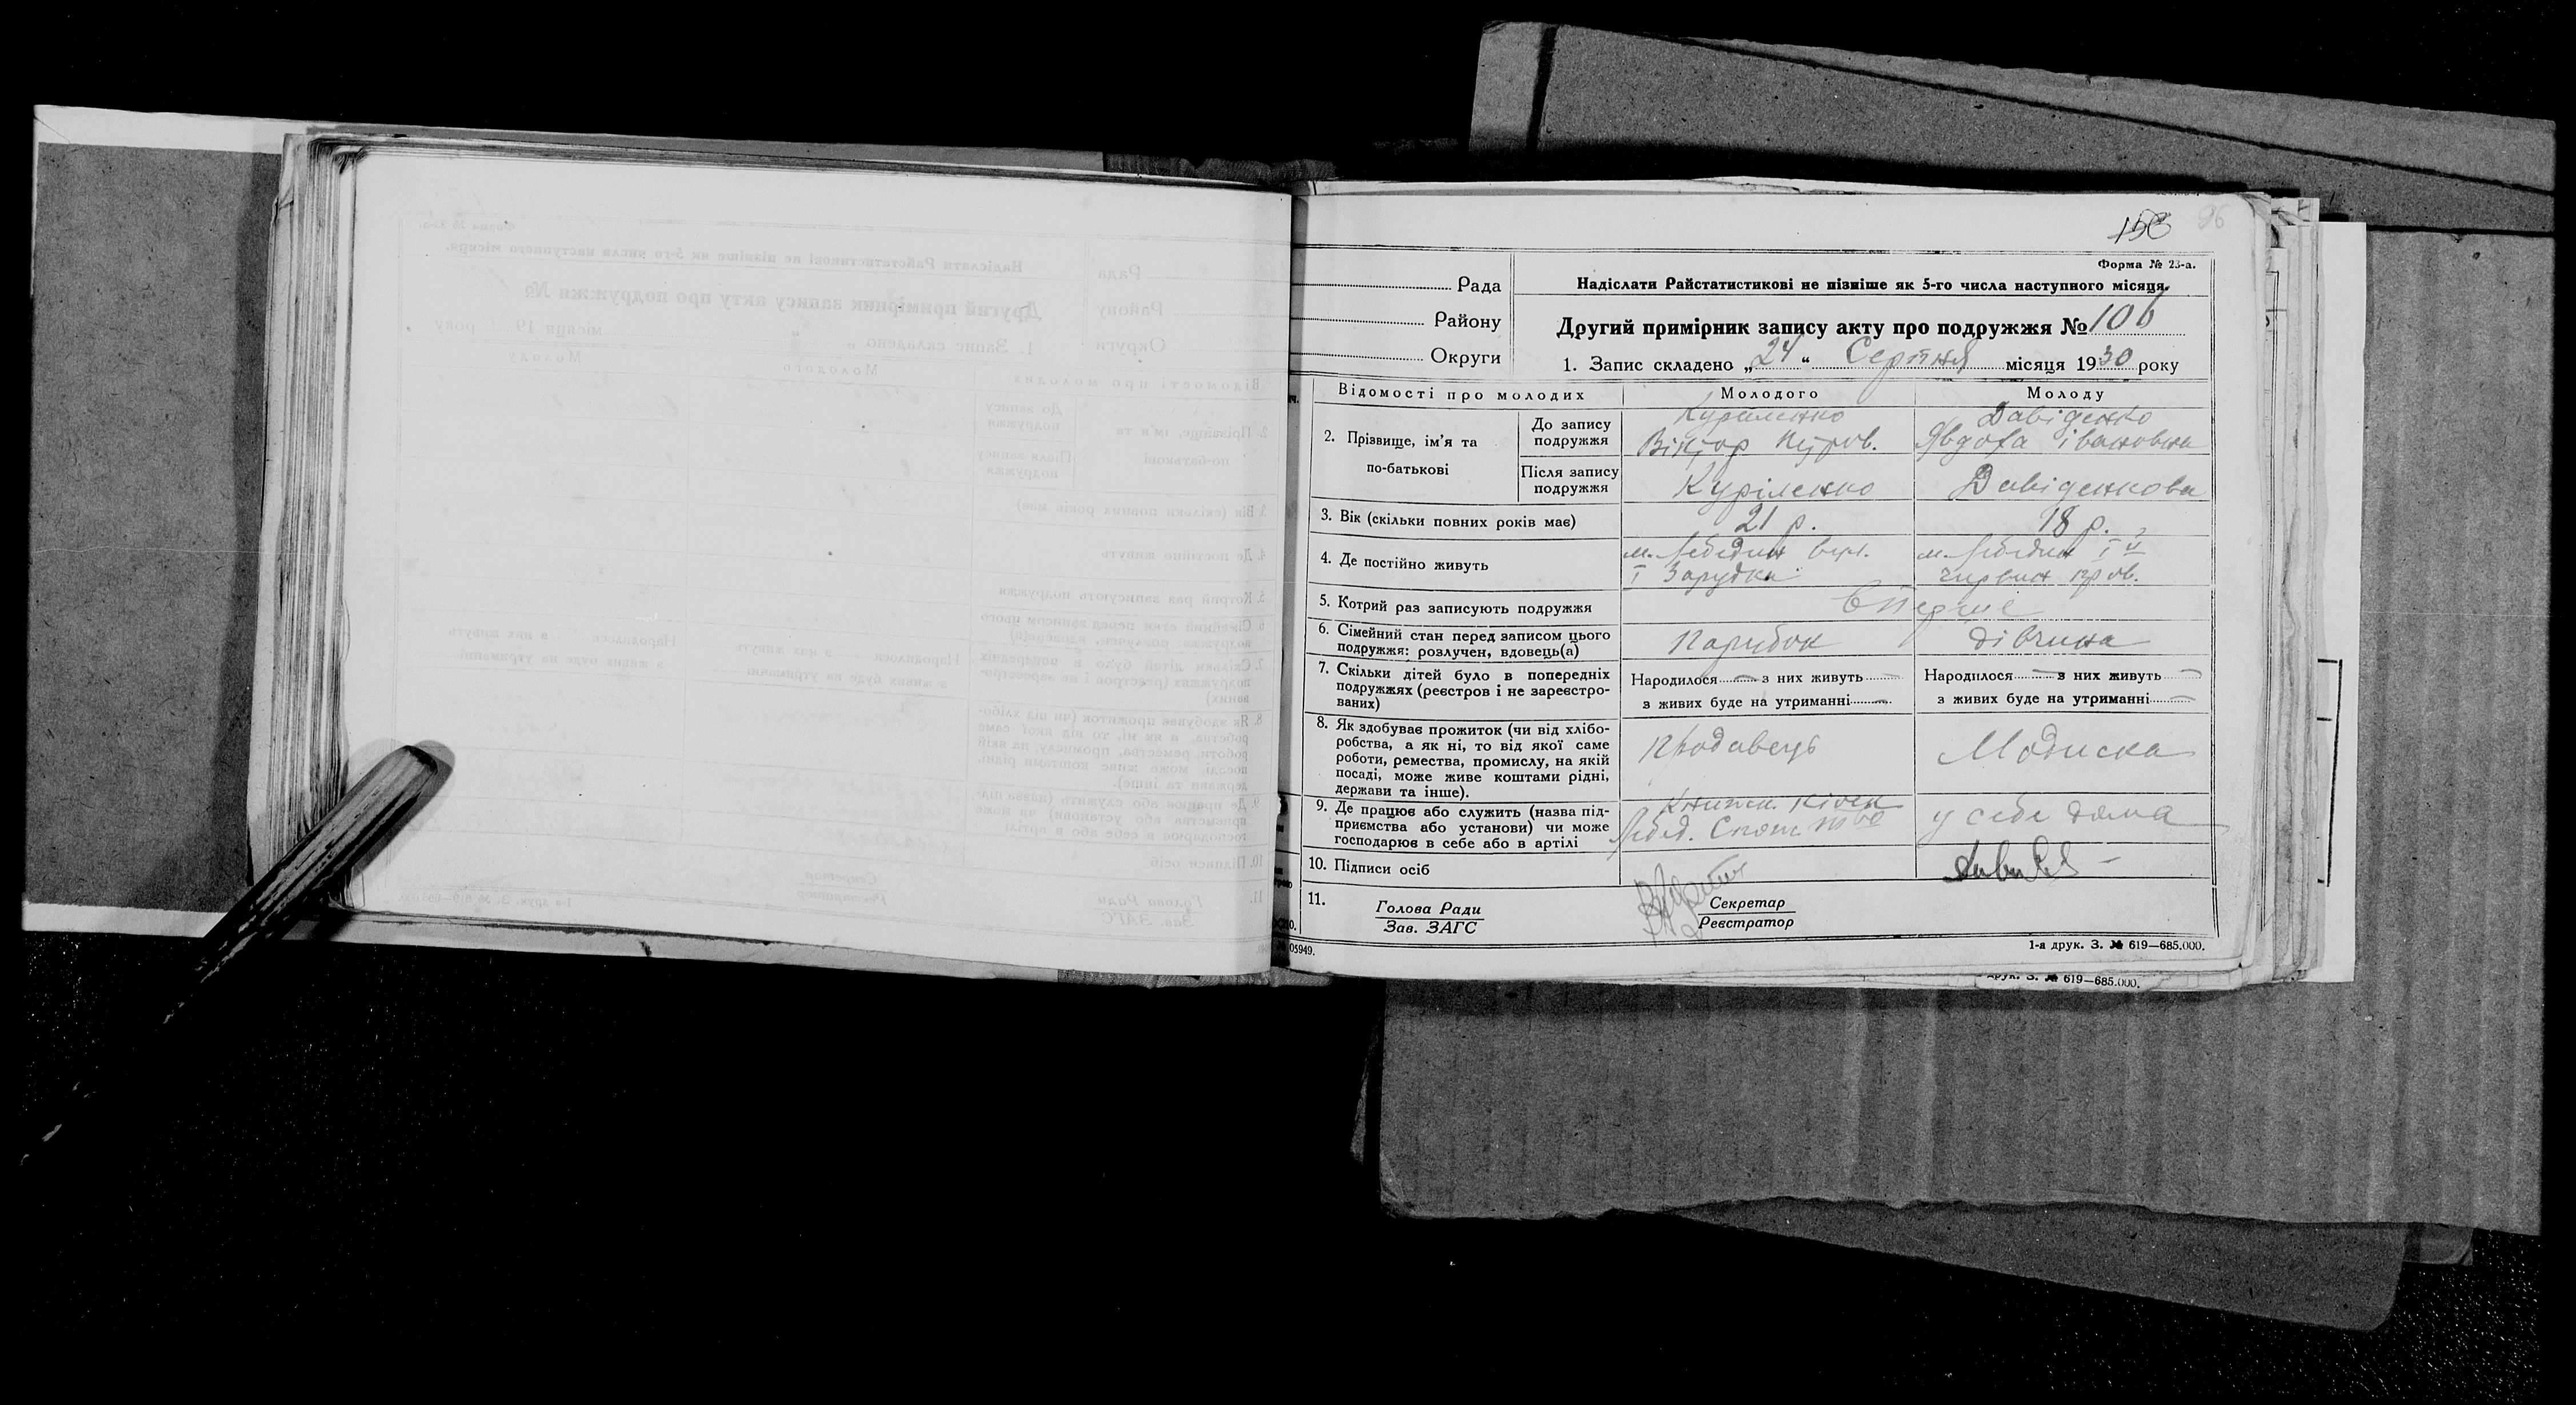 96
Форма № 23-а.
Рада
Району
Округи
Надіслати Райстатистикові не пізніше як 5-го числа наступного місяця.
Другий примірник запису акту про подружжя № 106
1. Запис складено „24“ Серпня місяця 1930 року
Відомості про молодих
Молодого
Молоду
2. Прізвище, ім'я та по-батькові
До запису подружжя
Куріленко
Віктор Петров.
Давіденко
Явдоха івановна
Після запису подружжя
Куріленко
Давіденкова
3. Вік (скільки повних років має)
21 р.
18 р.
4. Де постійно живуть
м. Лебедин
I Зарудка
м. Лебедин
червон пров.
5. Котрий раз записують подружжя
Вперше
6. Сімейний стан перед записом цього
подружжя: розлучен, вдовець(а)
Парубок
дівчина
7. Скільки дітей було в попередніх
подружжях (реєстров і не зареєстро-
ваних)
Народилося — з них живуть —
з живих буде на утриманні —
Народилося — з них живуть —
з живих буде на утриманні —
8. Як здобуває прожиток (чи від хлібо-
робства, а як ні, то від якої саме
роботи, ремества, промислу, на якій
посаді, може живе коштами рідні,
держави та інше).
Продавець
Модиска
9. Де працює або служить (назва під-
приємства або установи) чи може
господарює в себе або в артілі
Лебед. Спож. т-во
у себе дома
10. Підписи осіб
11.
Голова Ради
Зав. ЗАГС
Секретар
Реєстратор
05949.
1-а друк. З. № 619—685.000.
друк. З. № 619—685.000.